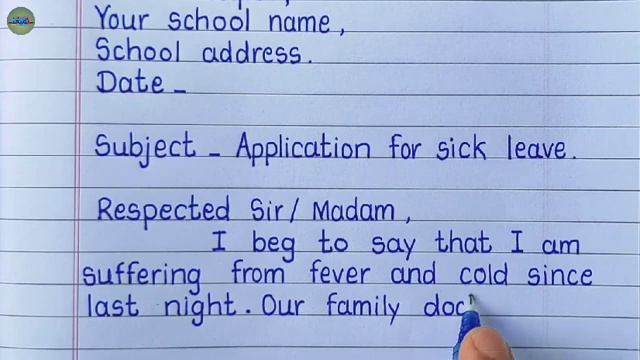 Your school name,
School address.
Date -
Subject - Application for sick leave.
Respected Sir/ Madam,
I beg to say that I am
suffering from fever and cold since
last night. Our family doc